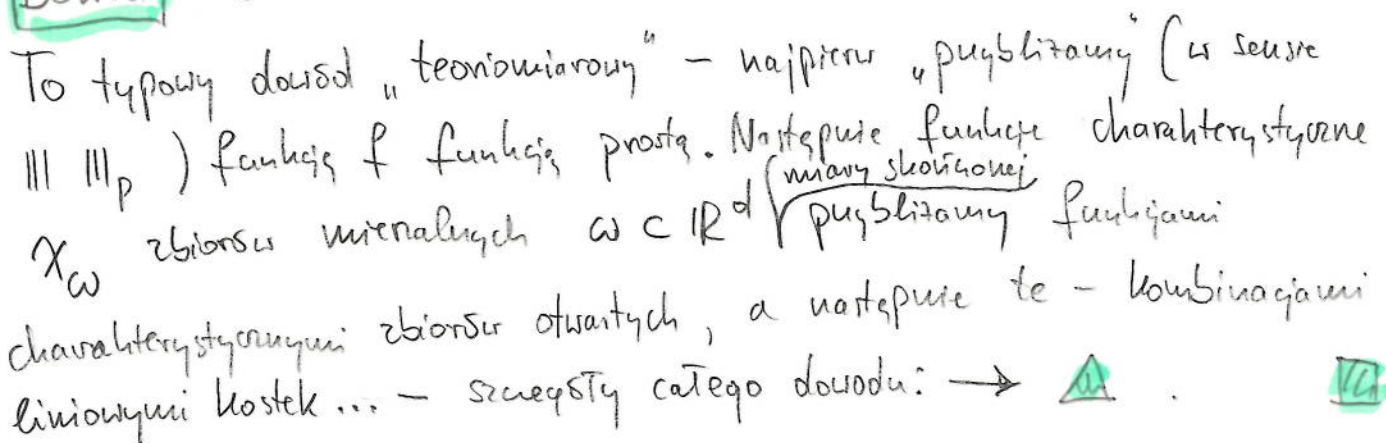 To typowy dowód „teoriomiarowy" – najpierw „przybliżamy" (w sensie
||| |||ₚ ) funkcję f funkcją prostą. Następnie funkcje charakterystyczne
χ_ω zbiorów mierzalnych ω ⊂ ℝᵈ miary skończonej przybliżamy funkcjami
charakterystycznymi zbiorów otwartych, a następnie te – kombinacjami
liniowymi kostek... – szczegóły całego dowodu: →